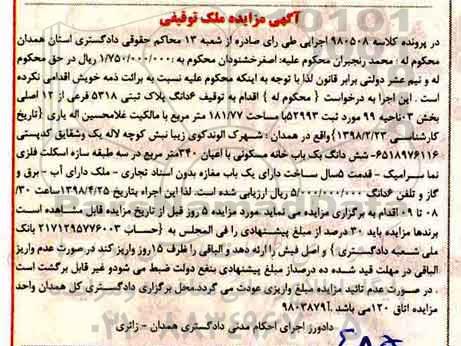 آگهی مزایده ملک توقیفی
در پرونده کلاسه ۹۸۰۵۰۸ اجرایی طی رای صادره از شعبه ۱۳ محاکم حقوقی دادگستری استان همدان
محکوم له : محمد رنجبران محکوم علیه: اصغرخشنودان محکوم به :۱/۷۵۰/۰۰۰/۰۰۰ ریال در حق محکوم
له و نیم عشر دولتی برابر قانون لذا با توجه به اینکه محکوم علیه نسبت به برائت ذمه خویش اقدامی نکرده
است . این اجرا به درخواست { محکوم له } اقدام به توقیف ۶دانگ پلاک ثبتی ۵۳۱۸ فرعی از ۱۲ اصلی
بخش ۳-ناحیه ۹۹ مورد ثبت ۵۲۹۹۳با مساحت ۱۸۱/۷۷ متر مربع با مالکیت غلامحسین اله یاری {تاریخ
کارشناسی ۱۳۹۸/۲/۲۳}واقع در همدان : شهرک الوندکوی زیبا نبش کوچه لاله یک وشقایق کدپستی
۶۵۱۸۹۷۶۱۱۶- شش دانگ یک باب خانه مسکونی با اعیان ۳۴۰متر مربع در سه طبقه سازه اسکلت فلزی
نما سرامیک - قدمت ۵سال ساخت دارای یک باب مغازه بدون اسناد تجاری - ملک دارای آب - برق و
گاز و تلفن ۶دانگ ۵/۰۰۰/۰۰۰/۰۰۰ ریال ارزیابی شده است. لذا این اجراء بتاریخ ۱۳۹۸/۴/۲۵ساعت ۳۰/
۰۸ تا ۰۹ اقدام به برگزاری مزایده می نماید.مورد مزایده ۵ روز قبل از تاریخ مزایده قابل مشاهده است
برندها مزایده باید ۳۰ درصد از مبلغ پیشنهادی را فی المجلس به {حساب ۲۱۷۱۲۹۵۷۷۶۰۰۳ بانک
ملی شعبه دادگستری } و اصل فیش را ارئه دهد و الباقی را ظرف ۱۵روز واریز کند در صورت عدم واریز
الباقی در مهلت قید شده ده درصداز مبلغ پیشنهادی بنفع دولت ضبط می شودو غیر قابل برگشت است
. در صورت عدم تائید مزایده مبلغ واریزی عودت می گردد.محل برگزاری دادگستری کل همدان واحد
مزایده اتاق ۱۲۰می باشد .۹۸۰۳۸۷۹آ
دادورز اجرای احکام مدنی دادگستری همدان - زائری